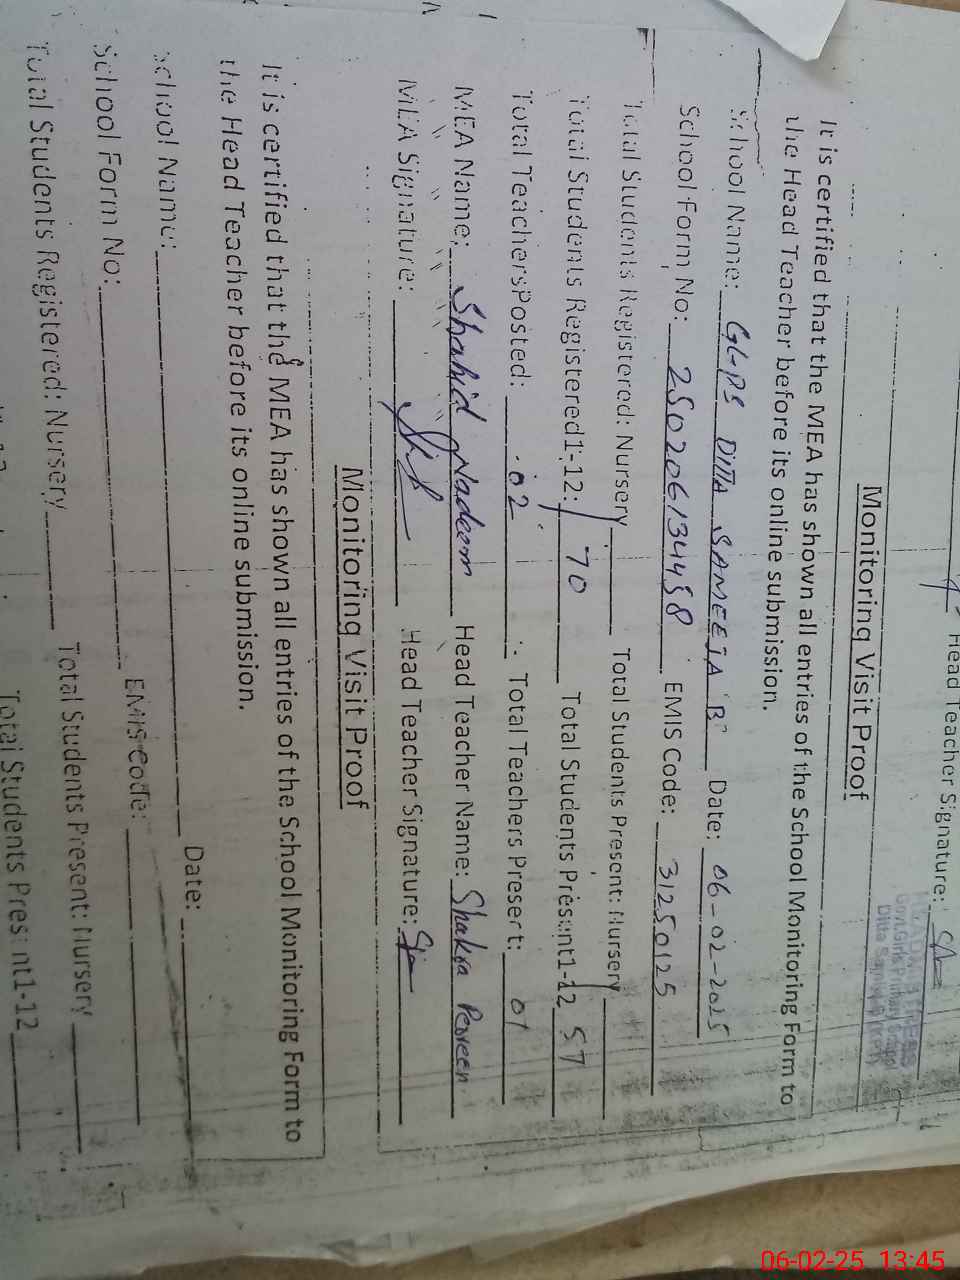 Head Teacher Signature:
Govt. Girls Primary School
Monitoring Visit Proof
It is certified that the MEA has shown all entries of the School Monitoring Form to
the Head Teacher before its online submission.
School Name: GGPS DITTA SAMEEJA B Date: 06-02-2025
School Form No: EMIS Code: 31250125
Total Students Registered: Nursery Total Students Present: Nursery
Total Students Registered1-12: 70 Total Students Present1-12 57
Total TeachersPosted: 02 Total Teachers Present: 01
MEA Name: Shahid Nadeem Head Teacher Name: Shakra Perveen
MEA Signature: Head Teacher Signature:
Monitoring Visit Proof
It is certified that the MEA has shown all entries of the School Monitoring Form to
the Head Teacher before its online submission.
School Name: Date:
School Form No: EMIS Code:
Total Students Registered: Nursery Total Students Present: Nursery
Total Students Present1-12
06-02-25 13:45